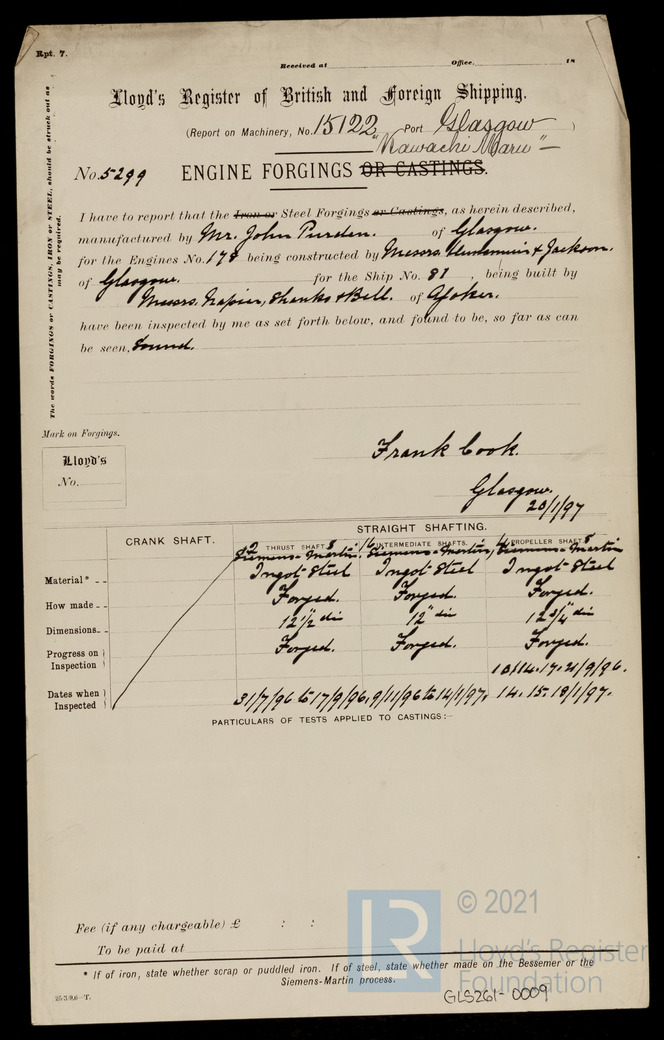 Rpt. 7.
Received at Office, 18
Lloyd's Register of British and Foreign Shipping.
(Report on Machinery, No. 15122 Port Glasgow )
"Kawachi Maru"
No. 5299 ENGINE FORGINGS OR CASTINGS.
The words FORGINGS or CASTINGS, IRON or STEEL, should be struck out as
may be required.
I have to report that the Iron or Steel Forgings or Castings, as herein described,
manufactured by Mr. John Purden. of Glasgow.
for the Engines No. 178 being constructed by Messrs. & Jackson.
of Glasgow. for the Ship No. 81 , being built by
Messrs. Napier, Shanks & Bell. of Yoker.
have been inspected by me as set forth below, and found to be, so far as can
be seen, Sound.
Mark on Forgings.
Lloyd's
No.
Frank Cook.
Glasgow.
20/1/97
CRANK SHAFT. STRAIGHT SHAFTING.
2 THRUST SHAFTS 16 INTERMEDIATE SHAFTS. PROPELLER SHAFTS
Siemens-Martin Siemens-Martin, Siemens-Martin
Material* Ingot Steel Ingot Steel Ingot Steel
How made Forged. Forged. Forged.
Dimensions 12 1/2" dia 12" dia 12 3/4" dia
Progress on Inspection Forged. Forged. Forged.
10.14.17.21/9/96.
Dates when Inspected 31/7/96 to 17/9/96, 9/11/96 to 14/1/97, 14.15.18/1/97.
PARTICULARS OF TESTS APPLIED TO CASTINGS:—
Fee (if any chargeable) £ : :
To be paid at
* If of iron, state whether scrap or puddled iron. If of steel, state whether made on the Bessemer or the
Siemens-Martin process.
25/3/96—T.
GLS261-0009
LR
© 2021
Lloyd's Register
Foundation